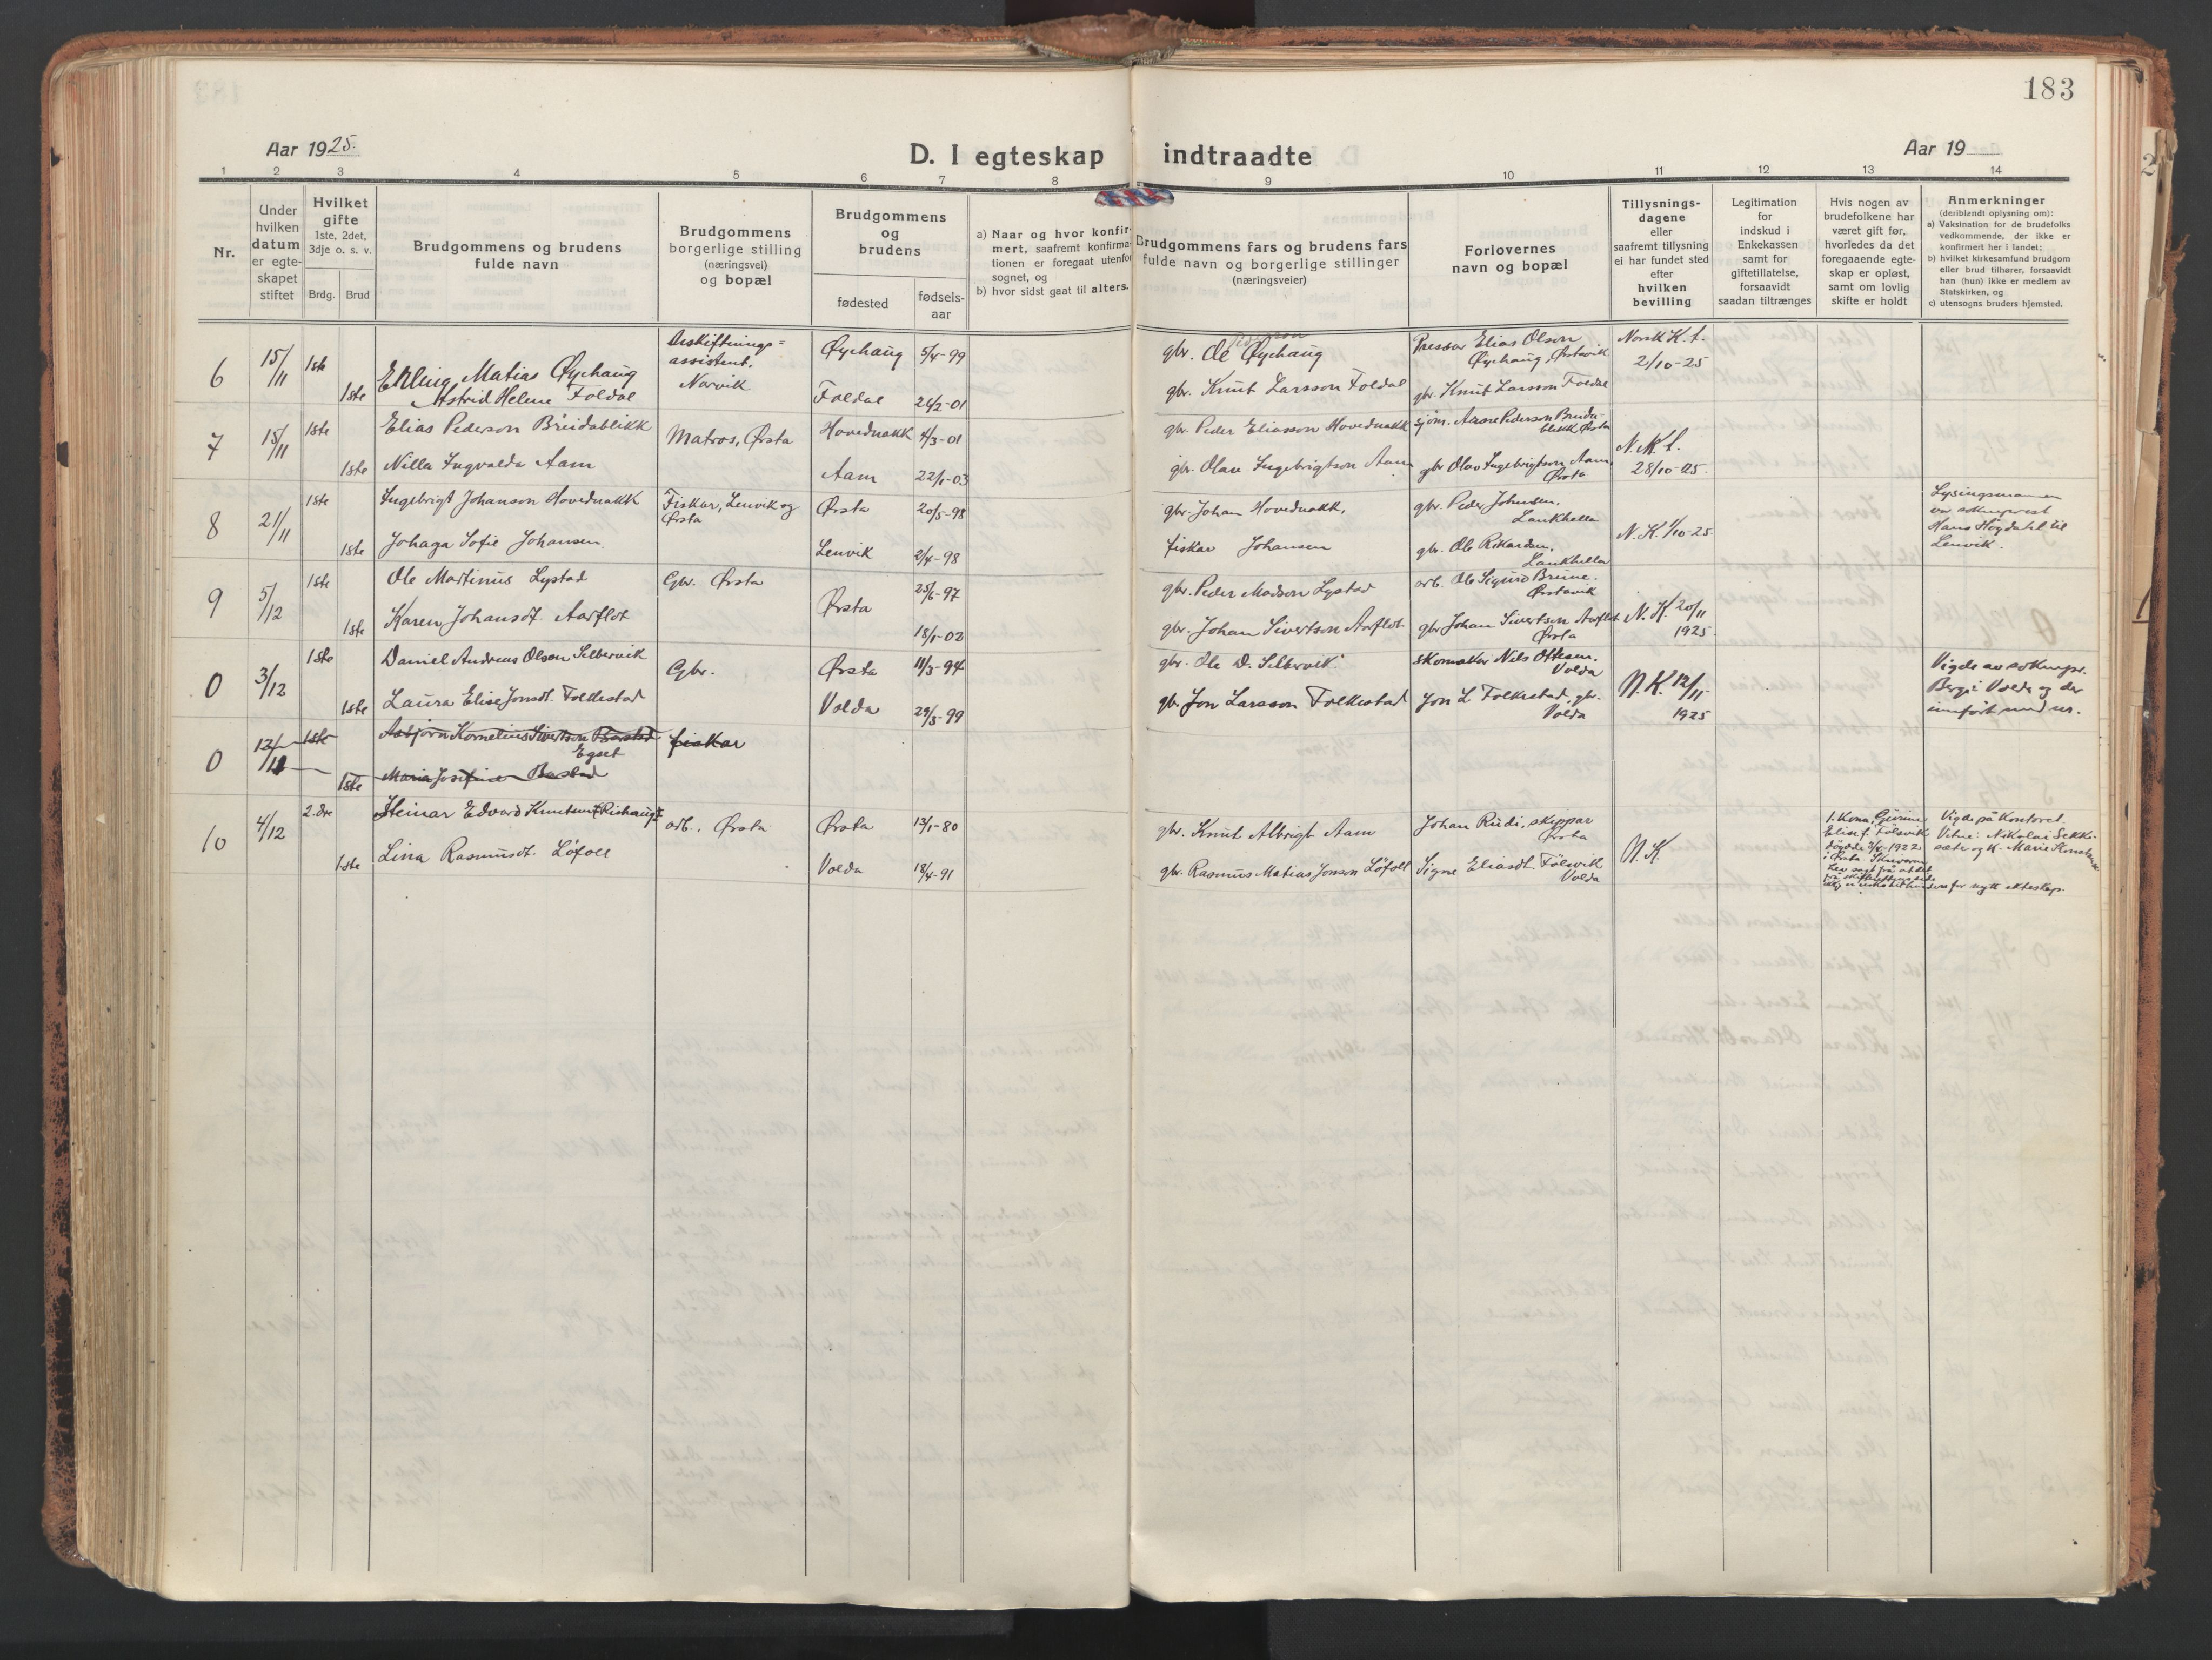 183
Aar 1925.
D. I egteskap indtraadte
Aar 19
1 2 3 4 5 6 7 8 9 10 11 12 13 14
Nr.
Under
hvilken
datum
er egte-
skapet
stiftet
Hvilket
gifte
1ste, 2det,
3dje o. s. v.
Brdg. Brud
Brudgommens og brudens
fulde navn
Brudgommens
borgerlige stilling
(næringsvei)
og bopæl
Brudgommens
og
brudens
fødested
fødsels-
aar
a) Naar og hvor konfir-
mert, saafremt konfirma-
tionen er foregaat utenfor
sognet, og
b) hvor sidst gaat til alters.
Brudgommens fars og brudens fars
fulde navn og borgerlige stillinger
(næringsveier)
Forlovernes
navn og bopæl
Tillysnings-
dagene
eller
saafremt tillysning
ei har fundet sted
efter
hvilken
bevilling
Legitimation
for
indskud i
Enkekassen
samt for
giftetillatelse,
forsaavidt
saadan tiltrænges
Hvis nogen av
brudefolkene har
været gift før,
hvorledes da det
foregaaende egte-
skap er opløst,
samt om lovlig
skifte er holdt
Anmerkninger
(deriblandt oplysning om):
a) Vaksination for de brudefolks
vedkommende, der ikke er
konfirmert her i landet;
b) hvilket kirkesamfund brudgom
eller brud tilhører, forsaavidt
han (hun) ikke er medlem av
Statskirken, og
c) utensogns bruders hjemsted.
6
15/11
1ste
Erling Matias Øyehaug
assistent.
Narvik
Øyehaug
5/4-99
gbr. Ole Øyehaug
Elias Olson
Øyehaug, Ørstavik
Norsk K. t.
2/10-25
1ste
Astrid Helene Foldal
Foldal
26/2-01
gbr. Knut Larsson Foldal
gbr. Knut Larsson Foldal
7
15/11
1ste
Elias Pederson Breidablikk
Matros, Ørsta
Hovednakk
4/3-01
gbr. Peder Eliasson Hovednakk
sjøm. Arne Pederson Breida-
blikk, Ørsta
N. K. t.
28/10-25.
1ste
Nilla Ingvalda Aam
Aam
22/1-03
gbr. Olav Ingebrigtson Aam
gbr Olav Ingebrigtson Aam,
Ørsta
8
21/11
1ste
Ingebrigt Johanson Hovednakk
Fiskar, Lenvik og
Ørsta
Ørsta
20/5-98
gbr. Johan Hovednakk,
gbr. Peder Johnsen,
Laukhella
N. K. 1/10-25
Lysingsmannen
var sokneprest
Hans Høgdahl til
Lenvik.
1ste
Johaga Sofie Johansen
Lenvik
2/4-98
fiskar Johansen
gbr. Ole Rikardsen,
Laukhella
9
5/12
1ste
Ole Martinus Lystad
Gbr. Ørsta
Ørsta
25/6-97
gbr. Peder Madson Lystad
arb. Ole Sigurd Brune.
Ørstavik
1ste
Karen Johansdt. Aarflot
18/1-02
gbr. Johan Sivertson Aarflot
gbr Johan Sivertson Aarflot
Ørsta
N. K. 20/11
1925
0
3/12
1ste
Daniel Andreas Olson Sæbøvik
Gbr.
Ørsta
11/3-94
gbr. Ole D. Sæbøvik
skomaker Nils Ottesen.
Volda
N. K. 12/11
1925
Vigde av soknepr.
Berg i Volda og der
innført med nr.
1ste
Laura Elise Jonsdt. Folkestad
Volda
29/5-99
gbr. Jon Larsson Folkestad
Jon L Folkestad, gbr.
Volda
0
12/11
1ste
Asbjørn Kornelius Sivertson Barstad
Egset
fiskar
1ste
Maria Josefine Barstad
10
4/12
2.dre
Steinar Edvard Knutson (Rishaug)
arb., Ørsta
Ørsta
13/1-80
gbr. Knut Albrigt Aam
Johan Rudi, skippar
Ørsta
N. K.
1. Kona,
Elise f. Følsvik
døydde 3/4-1922
i Ørsta.
Vigde på Kontoret.
Vitne: Nikolai Sekki-
sæte og K. Marie
1ste
Lina Rasmusdt. Løfoll
Volda
18/4-91
gbr. Rasmus Matias Jonson Løfoll
Signe Eliasdt. Følsvik
Volda
for nytt ekteskap.